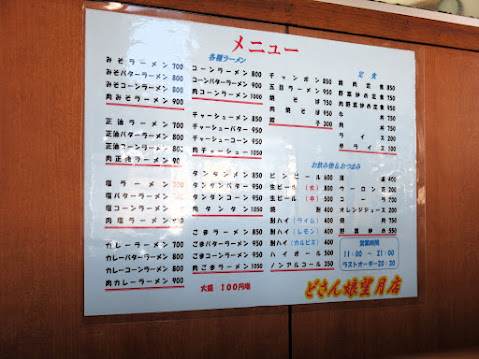 メニュー
各種ラーメン
みそラーメン 700
みそバターラーメン 800
みそコーンラーメン 800
肉みそラーメン 900
正油ラーメン 700
正油バターラーメン 800
正油コーンラーメン 800
肉正油ラーメン 900
塩ラーメン 700
塩バターラーメン
塩コーンラーメン
肉塩ラーメン
カレーラーメン 700
カレーバターラーメン 800
カレーコーンラーメン 800
肉カレーラーメン 900
コーンラーメン 800
コーンバターラーメン 900
肉コーンラーメン 1000
チャーシューメン 850
チャーシューバター 950
チャーシューコーン 950
肉チャーシュー 1050
タンタンメン 850
タンタンバター 950
タンタンコーン 950
肉タンタン 1050
ごまラーメン 850
ごまバターラーメン 950
ごまコーンラーメン 950
肉ごまラーメン 1050
大盛 100円増
チャンポン 850
五目ラーメン 950
焼そば 750
肉焼そば 950
餃子 300
定食
焼肉定食 850
野菜炒め定食
肉野菜炒め定食
丼
丼 750
ライス
半ライス
お飲み物&おつまみ
ビンビール 600
生ビール (大)
生ビール (中)
焼酎 400
酎ハイ (ライム) 400
酎ハイ (レモン) 400
酎ハイ (カルピス) 400
ハイボール 500
ノンアルコール 350
酒 400
ウーロン茶 200
コーラ 200
オレンジジュース 200
野菜炒め 550
営業時間
11:00 ～ 21:00
ラストオーダー 20:30
どさん娘望月店